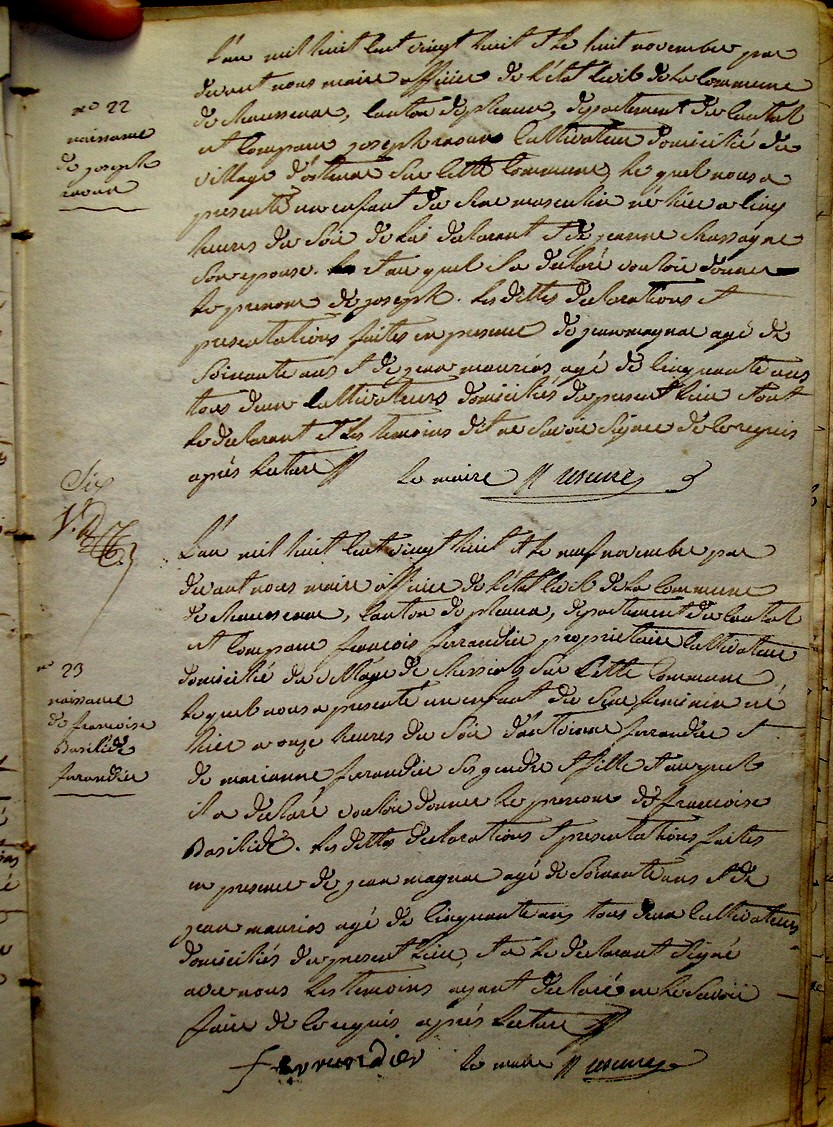 n° 22
naissance
de joseph
L'an mil huit cent vingt huit et le huit novembre par
devant nous maire officier de l'état civil de la Commune
de chaussenac, Canton de pleaux, departement du Cantal
est Comparu joseph Cultivateur domicilié du
village d'ostenac sur cette Commune, le quel nous a
presenté un enfant du sexe masculin né hier a cinq
heures du soir de lui declarant et de jeanne chassagne
son epouse. et au quel il a declaré vouloir donner
le prenom de joseph. les dittes declarations et
presentations faites en presence de jean magnac agé de
soixante ans et de jean maurios agé de cinquante ans
tous deux cultivateurs domiciliés du present lieu et ont
le declarant et les temoins dit ne savoir signer de ce requis
après lecture
le maire
Six
n° 23
naissance
de francoise
Basilide
farandier
L'an mil huit cent vingt huit et le neuf novembre par
devant nous maire officier de l'état civil de la Commune
de chaussenac, Canton de pleaux, departement du Cantal
est Comparu françois farandier propriétaire Cultivateur
domicilié du village de sur cette Commune,
le quel nous a presenté un enfant du sexe feminin né
hier a onze heures du soir d'antoine farandier et
de marianne farandier ses gendre et fille et au quel
il a declaré vouloir donner le prenom de francoise
Basilide. les dittes declarations et presentations faites
en presence de jean magnac agé de soixante ans et de
jean maurios agé de cinquante ans tous deux cultivateurs
domiciliés du present lieu, et a le declarant signé
avec nous les temoins ayant declaré ne le savoir
faire de ce requis après lecture
ferrandier le maire